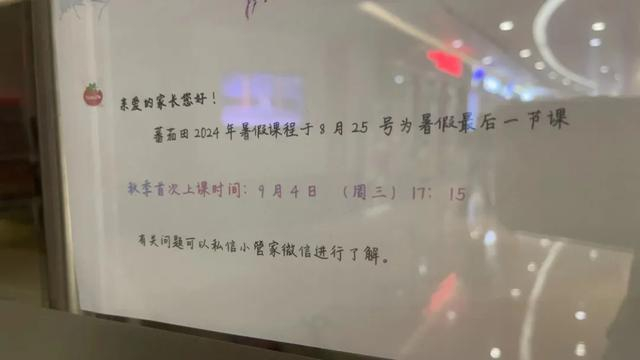 亲爱的家长您好！
蕃茄田2024年暑假课程于8月25号为暑假最后一节课
秋季首次上课时间：9月4日（周三）17：15
有关问题可以私信小管家微信进行了解。